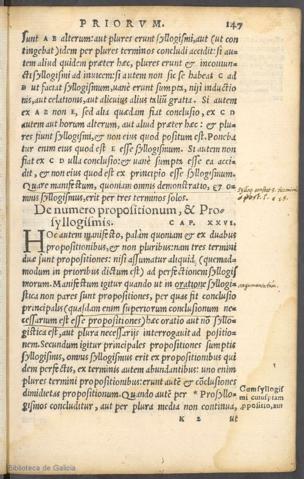 PRIORVM. 147
sunt A B alterum: aut plures erunt syllogismi, aut (ut con
tingebat) idem per plures terminos concludi accidit: si au-
tem aliud quidem præter hæc, plures erunt & inconiun-
cti syllogismi ad inuicem: si autem non sic se habeat C ad
D ut faciat syllogismum, uanè erunt sumpta, nisi inductio
nis, aut celationis, aut alicuius alius talium gratia. Si autem
ex A B non E, sed alia quædam fiat conclusio, ex C D
autem aut horum alterum, aut aliud præter hæc: & plu-
res fiunt syllogismi, & non eius quod positum est. Poneba
tur enim eius quod est E esse syllogismum. Si autem non
fiat ex C D ulla conclusio: & uanè sumpta esse ea acci-
dit, & non eius quod est ex principio esse syllogismum.
Quare manifestum, quoniam omnis demonstratio, & o-
mnis syllogismus, erit per tres terminos solos.
De numero propositionum, & Pro-
syllogismis. CAP. XXVI.
HOc autem manifesto, palàm quoniam & ex duabus
propositionibus, & non pluribus: nam tres termini
duæ sunt propositiones: nisi assumatur aliquid, (quemad-
modum in prioribus dictum est) ad perfectionem syllogis
morum. Manifestum igitur quando ut in oratione syllogi-
stica non pares sunt propositiones, per quas fit conclusio
principalis (quasdam enim superiorum conclusionum ne-
cessarum est esse propositiones) hæc oratio aut nō syllo-
gistica est, aut plura necessarijs interrogauit ad positio-
nem. Secundum igitur principales propositiones sumptis
syllogismis, omnis syllogismus erit ex propositionibus qui
dem perfectis, ex terminis autem abundantibus: uno enim
plures termini propositionibus: erunt autē & cōclusiones
dimidietas propositionum. Quando autē per * Prosyllo-
gismos concluditur, aut per plura media non continua,
Cum syllogis
mi cuiuspiam
K 2 ut
Biblioteca de Galicia